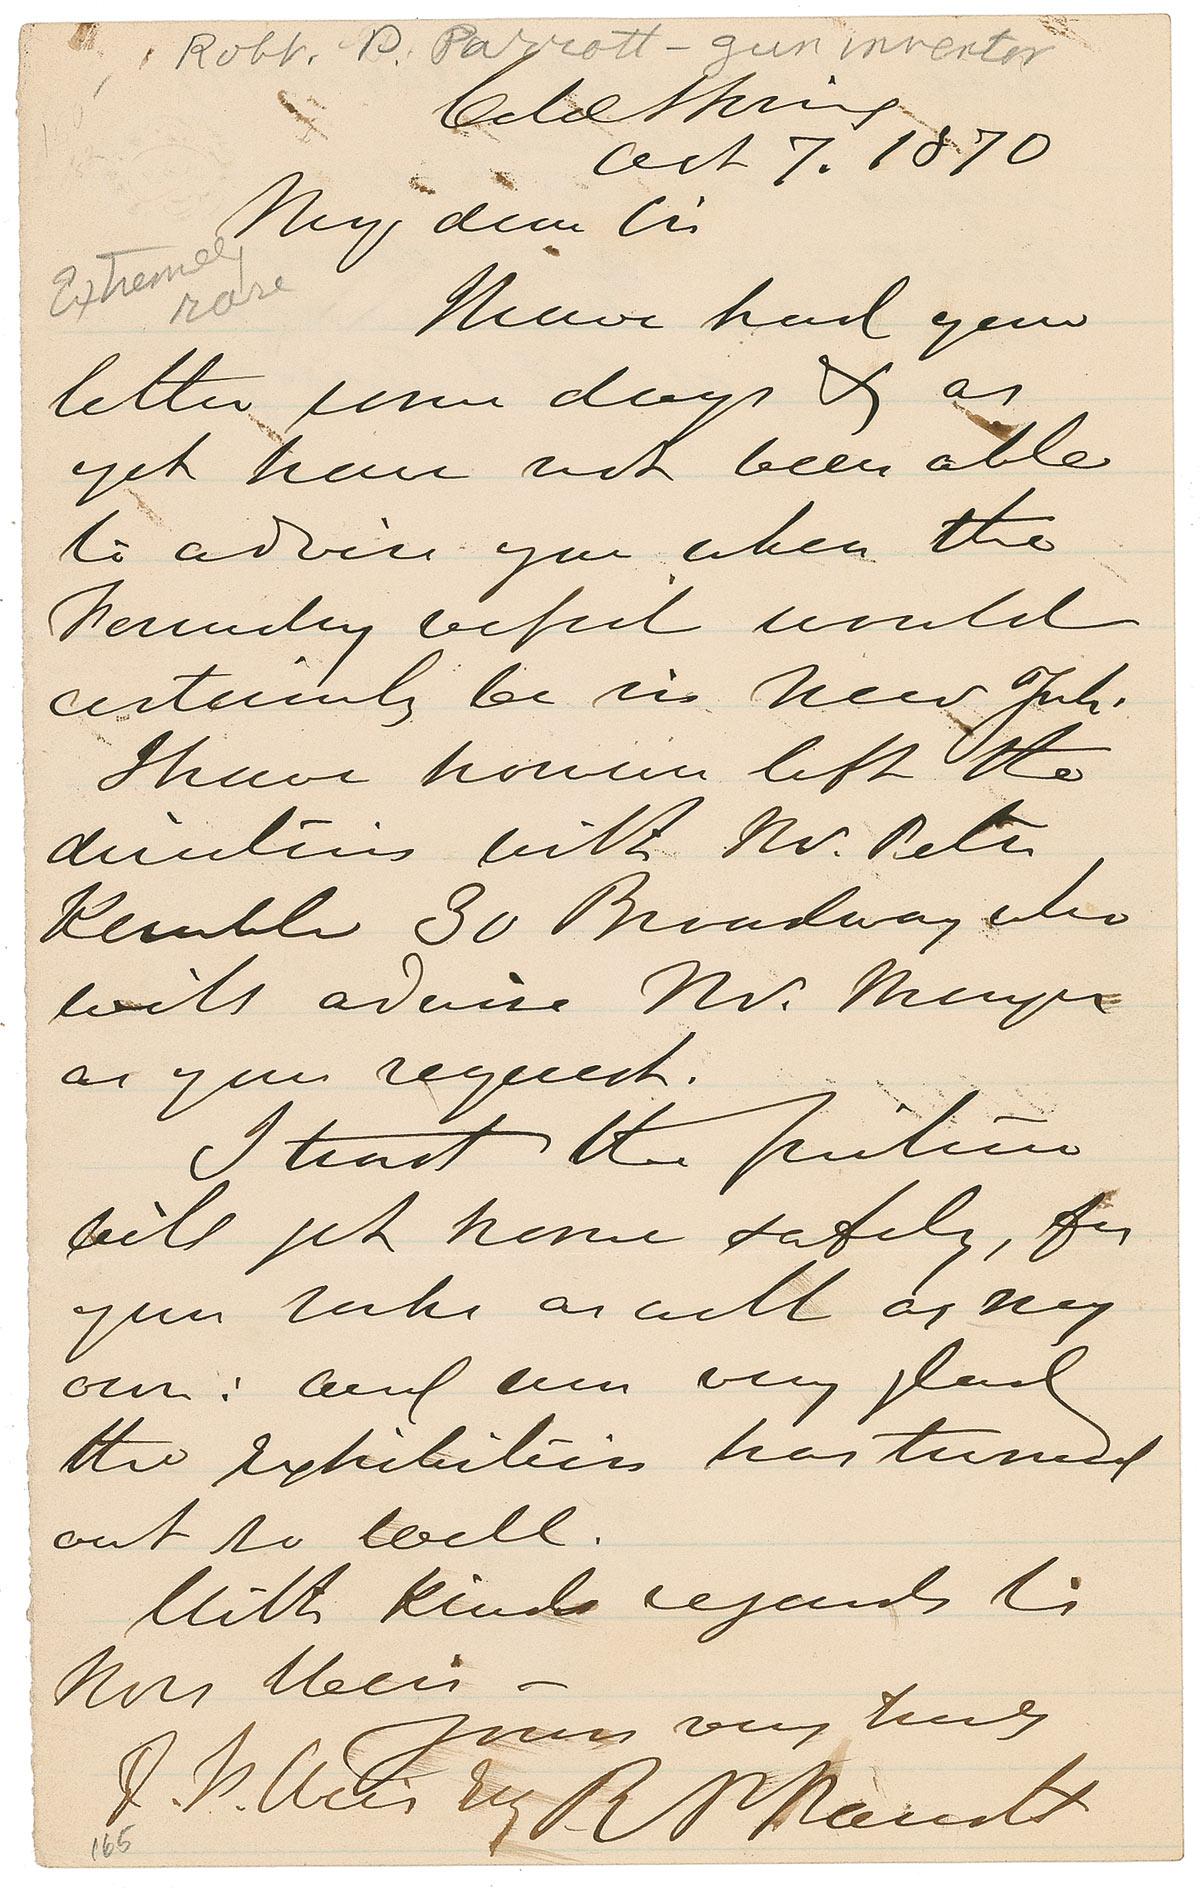 Robt. P. Parrott - gun inventor
Cold Spring
Oct 7. 1870
My dear Sir
Extremely
rare
I have had your
letter some days & as
yet have not been able
to advise you when the
Foundry vessel would
certainly be in New York.
I have however left the
directions with Mr. Peter
Kemble 30 Broadway who
will advise Mr.
as you request.
I trust the picture
will get home safely, for
your sake as well as my
own: and am very glad
the Exhibition has turned
out so well.
With kind regards to
Mrs Weir -
Yours very truly
J. F. Weir Esq R P Parrott
165